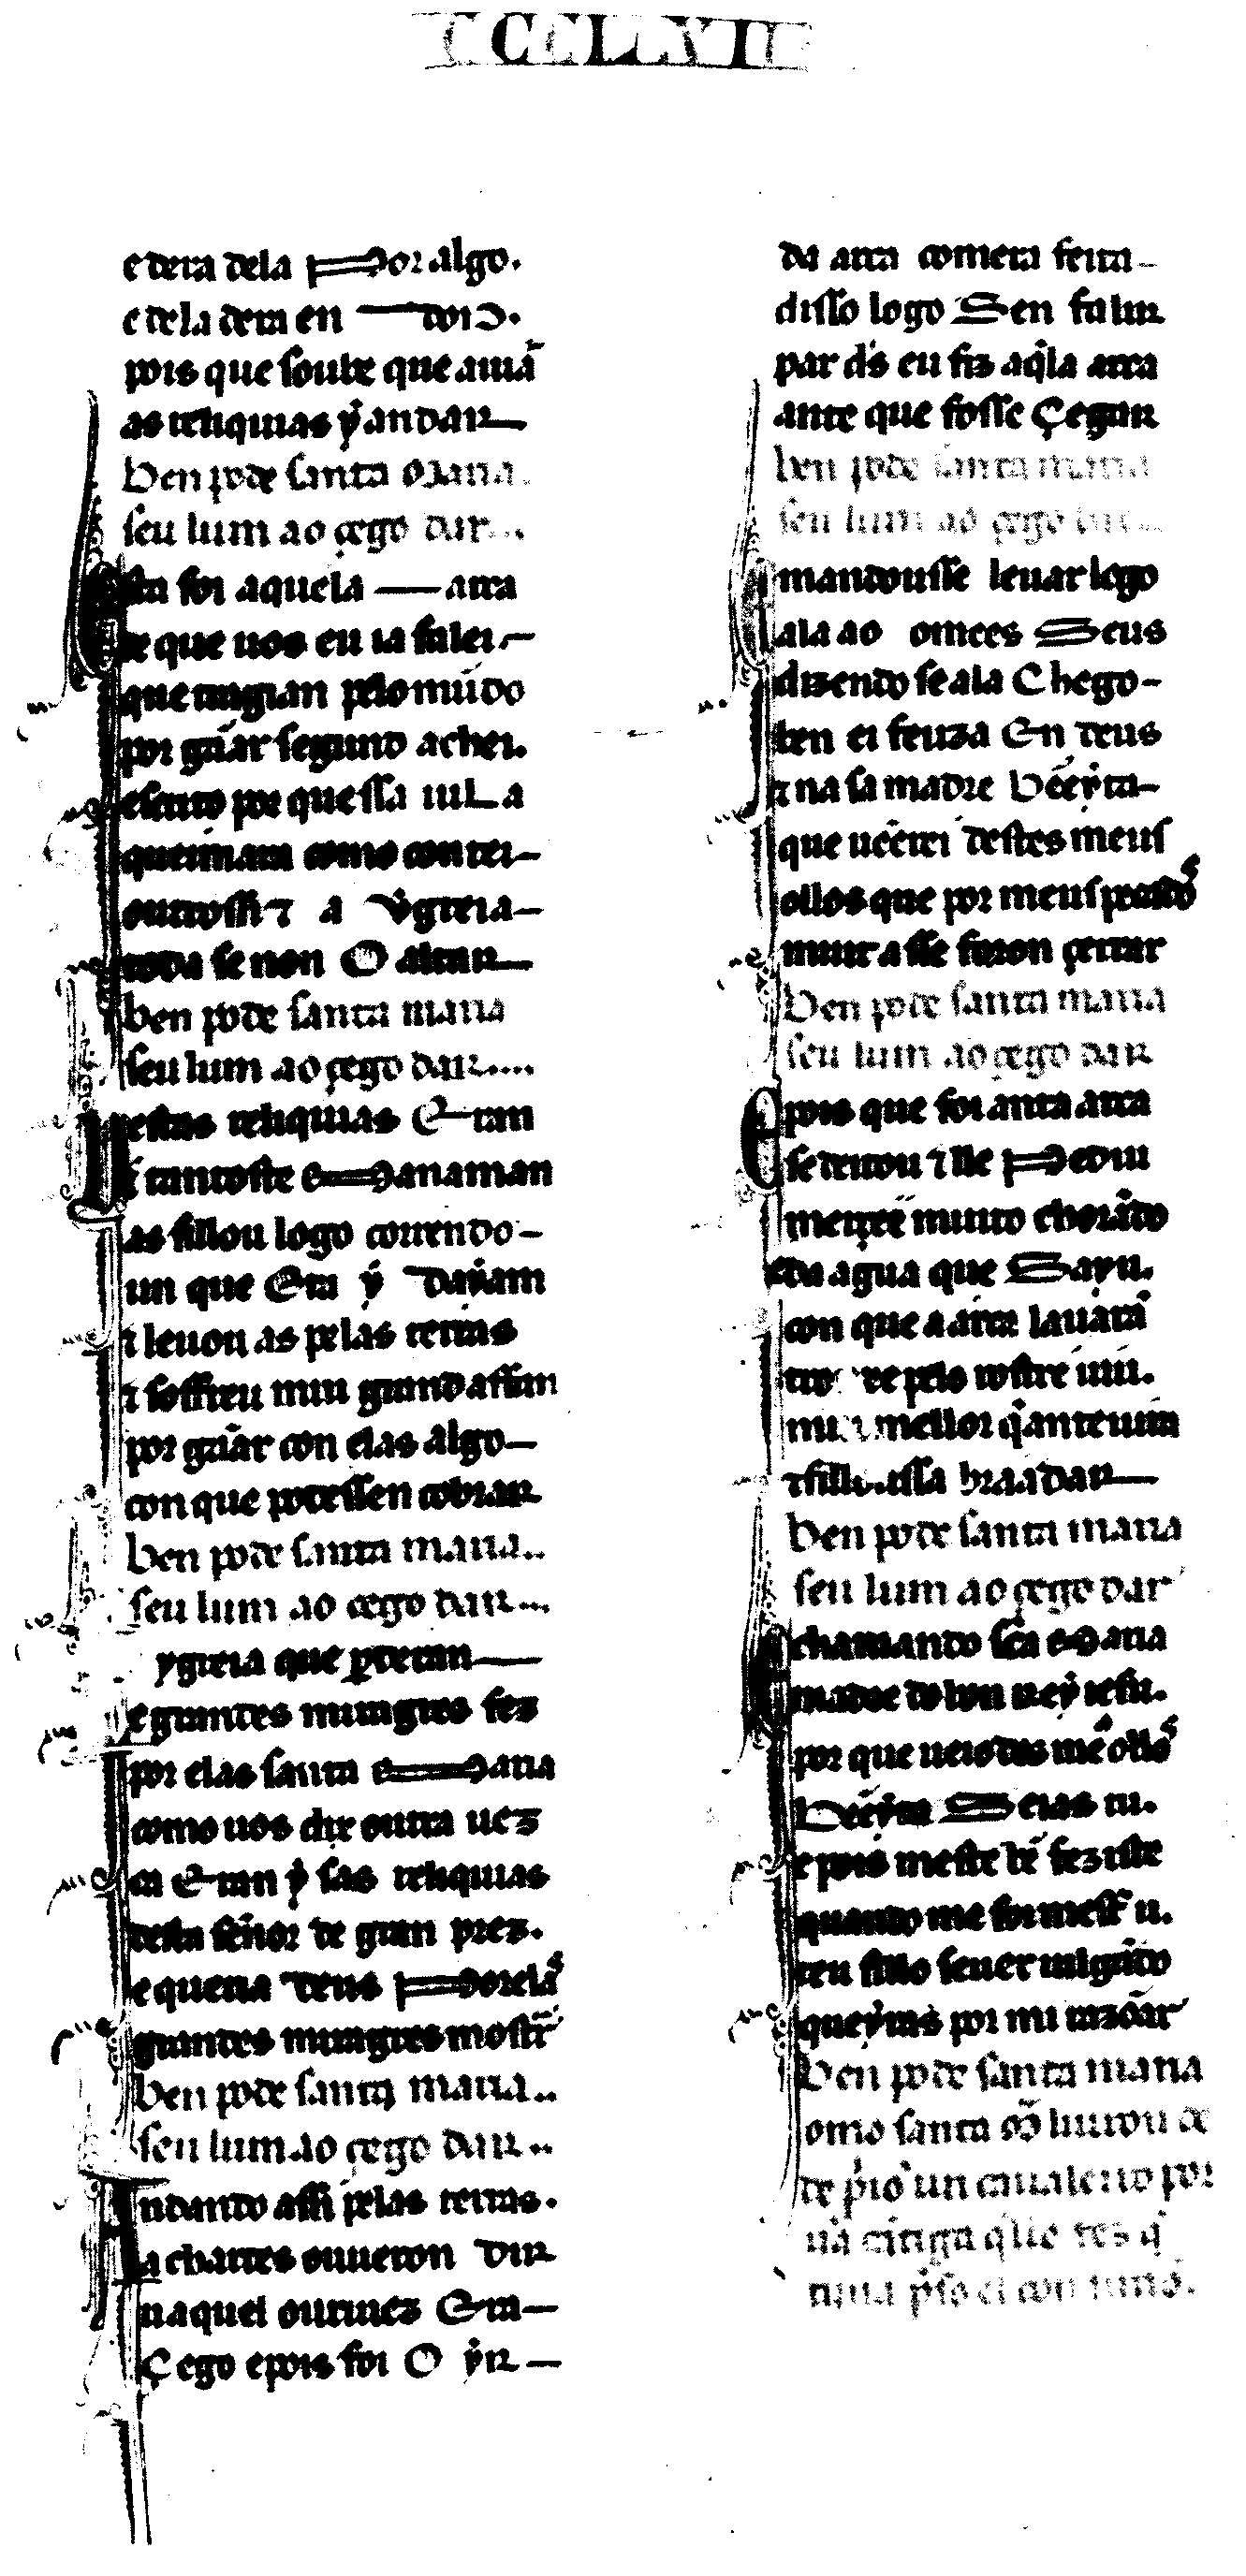 CCCLXVII
e dera dela Por algo.
e dela dera en dõr.
pois que soube que auiã
as reliquias ẏ andar
Ben pode santa Maria.
seu lum ao çego dar...
Esta foi aquela arca
de que uos eu ia falei.
que tragian pelo mũdo
por gãar segund achei.
escrito por que ssa uila
queimara como contei
outrossi ⁊ a ẏgreia
toda se non O altar
Ben pode santa maria
seu lum ao çego dar....
estas reliquias Eran
tantoste Manaman
as fillou logo correndo
un que Era ẏ Daẏam
⁊ leuou as pelas terras
⁊ soffreu mui grand affam
por gãar con elas algo
con que podessen cobrar
Ben pode santa maria..
seu lum ao çego dar...
ygreia que perderan
e grandes miragres fez
por elas santa Maria
como uos direi outra uez
ca Eran ẏ sas reliquias
desta señor de gran prez.
e queria Deus Por elas
grandes miragres mostrar
Ben pode santa maria..
seu lum ao çego dar..
Andando assi pelas terras.
a chartes ouueron Dir
naquel ouriuez Era
Çego e pois foi O ẏr
da arca com era feita
disso logo Sen falir
par d's eu fiz aq̃la arca
ante que fosse Çegar
ben pode santa maria
seu lum ao çego dar..
E mandousse leuar logo
ala ao omees Seus
dizendo se ala Chego
ben ei feuza En deus
⁊ na sa madre bẽeyta
que uẽerei destes meus
ollos que por meus pecados
muit a sse foron çerrar
Ben pode santa maria
seu lum ao çego dar
E pois que foi ant a arca
se deitou ⁊ lle Pediu
merçee muito chorãdo
e da agua que Sayu.
con que a arca lauarã
pelo rostre uiu.
mellor q̃ ante uira
⁊ fillousssa braadar
ben pode santa maria
seu lum ao çego dar
E chamando sc̃a Maria
madre do bon rey iesu.
por que ueio dos me' ollos
Bẽeyta Seias tu.
e pois meste bẽ feziste
quando me for mester u.
teu fillo seuer iulgãdo
queyras por mi razõar
Ben pode santa maria
omo santa M̃ liurou de
de p̃io un caualeiro por
ũa cãtiga q̃ lle fes q̃
tiina p̃so el con